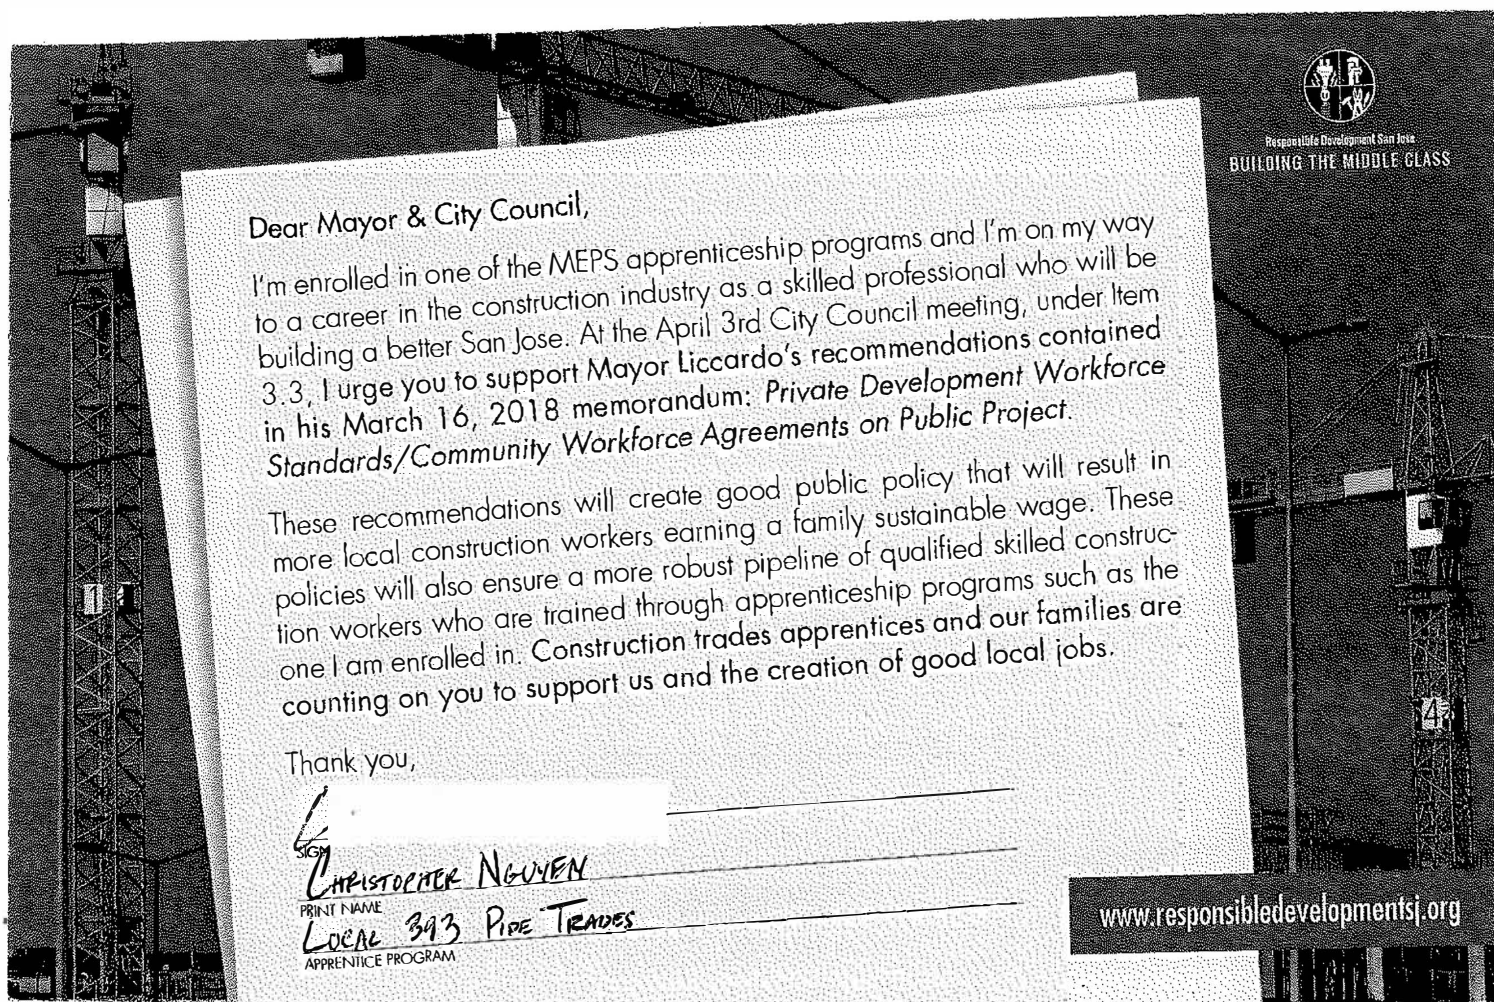 Responsible Development San Jose
BUILDING THE MIDDLE CLASS
Dear Mayor & City Council,
I'm enrolled in one of the MEPS apprenticeship programs and I'm on my way
to a career in the construction industry as a skilled professional who will be
building a better San Jose. At the April 3rd City Council meeting, under Item
3.3, I urge you to support Mayor Liccardo's recommendations contained
in his March 16, 2018 memorandum: Private Development Workforce
Standards/Community Workforce Agreements on Public Project.
These recommendations will create good public policy that will result in
more local construction workers earning a family sustainable wage. These
policies will also ensure a more robust pipeline of qualified skilled construc-
tion workers who are trained through apprenticeship programs such as the
one I am enrolled in. Construction trades apprentices and our families are
counting on you to support us and the creation of good local jobs.
Thank you,
CHRISTOPHER NGUYEN
PRINT NAME
LOCAL 393 PIPE TRADES
APPRENTICE PROGRAM
www.responsibledevelopmentsj.org
1
4